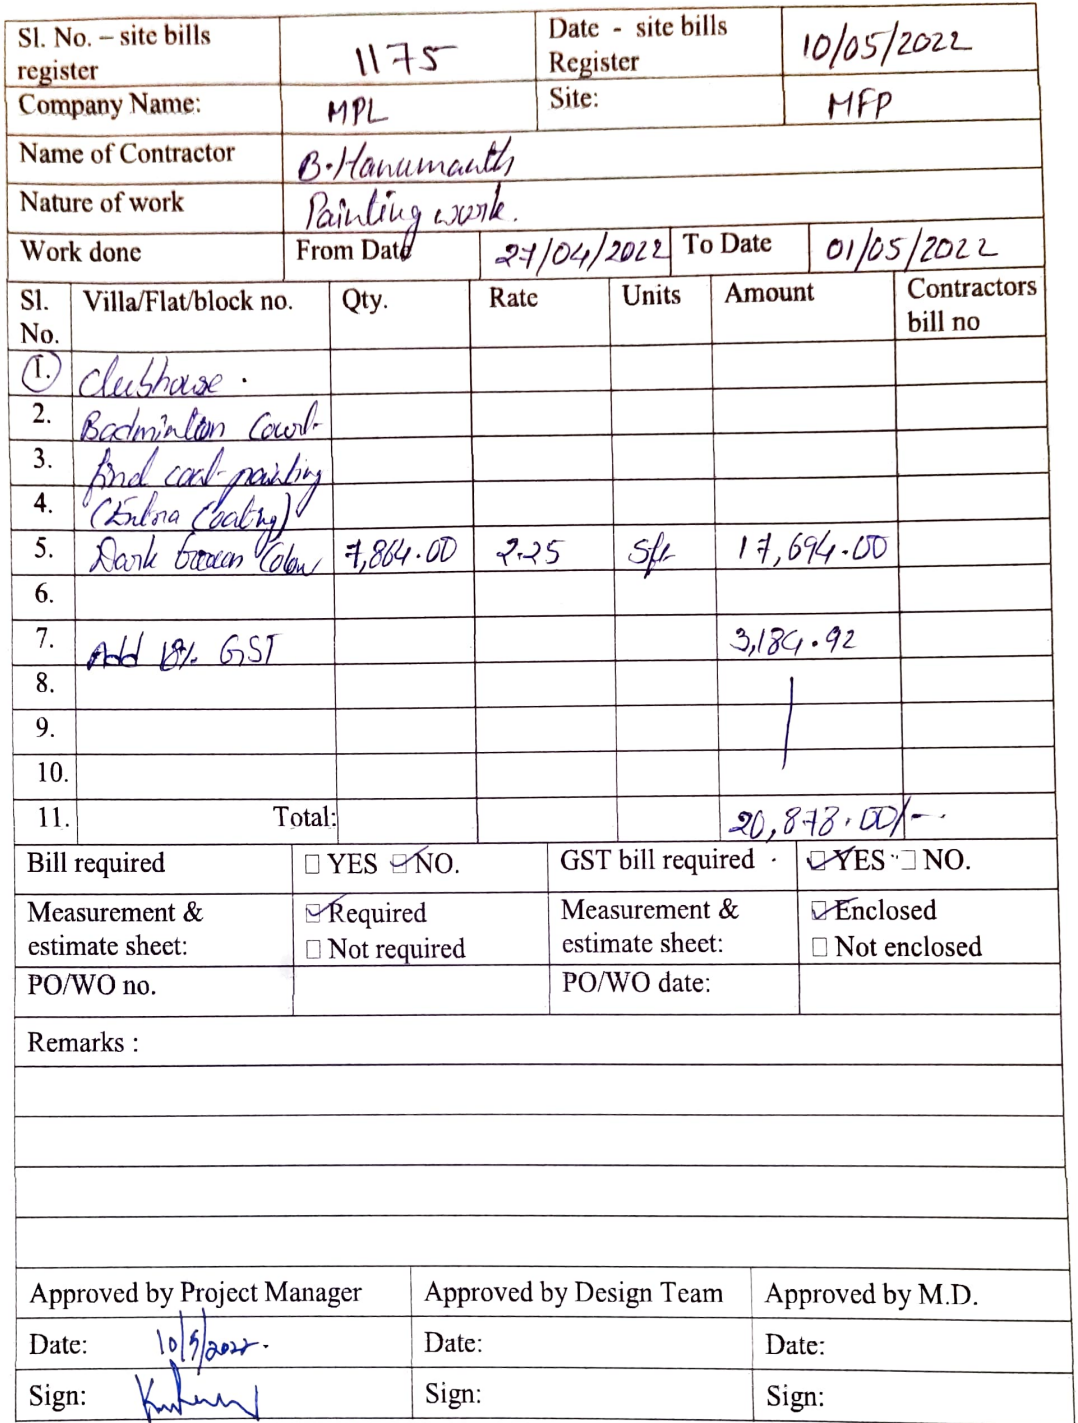 Sl. No. – site bills register 1175 Date - site bills Register 10/05/2022
Company Name: MPL Site: MFP
Name of Contractor B. Hanumanth
Nature of work Painting work.
Work done From Date 27/04/2022 To Date 01/05/2022
Sl. No. Villa/Flat/block no. Qty. Rate Units Amount Contractors bill no
1. Clubhouse.
2. Badminton Court
3. IInd coat painting
4. (Extra Coating)
5. Dark Green Colour 7,864.00 2.25 Sft 17,694.00
6.
7. Add 18% GST 3,184.92
8.
9.
10.
11. Total: 20,878.00/-
Bill required YES NO. GST bill required YES NO.
Measurement & estimate sheet: Required Measurement & estimate sheet: Enclosed
Not required Not enclosed
PO/WO no. PO/WO date:
Remarks :
Approved by Project Manager Approved by Design Team Approved by M.D.
Date: 10/5/2022. Date: Date:
Sign: Sign: Sign: